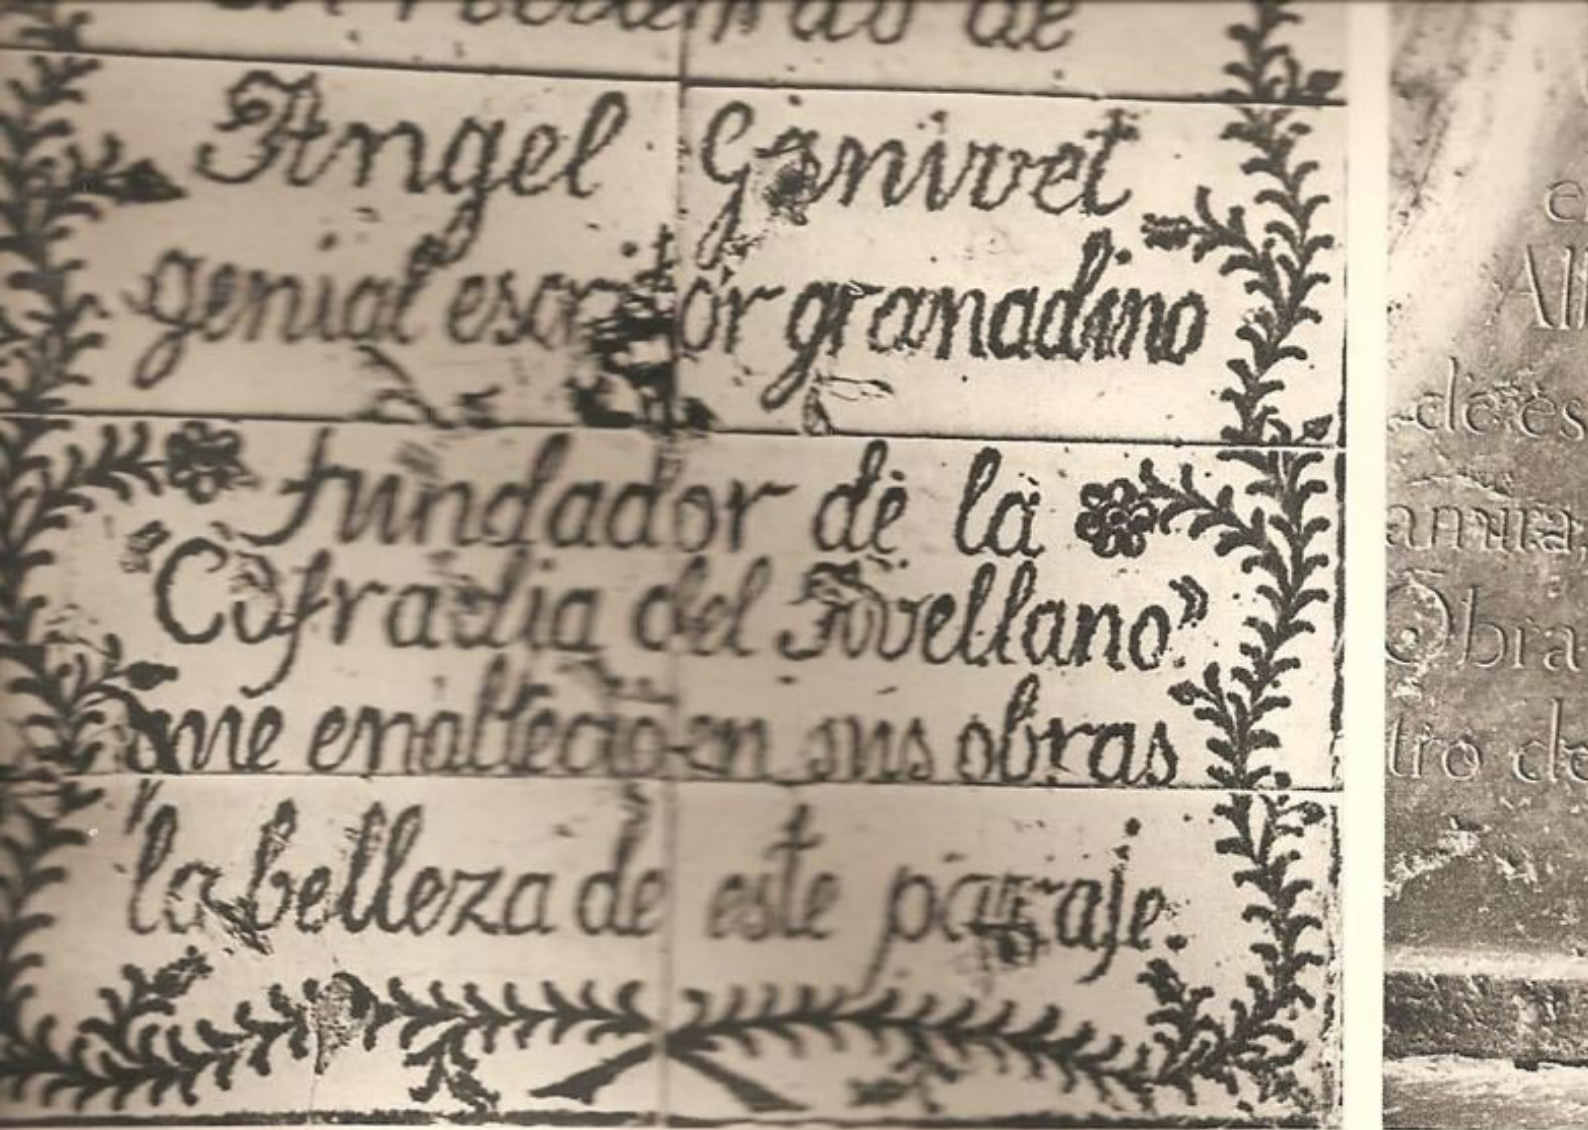 de
Angel Ganivet
genial escritor granadino
fundador de la
"Cofradia del Avellano"
que enalteció en sus obras
la belleza de este paraje.
de es
amira
Obra
tro de